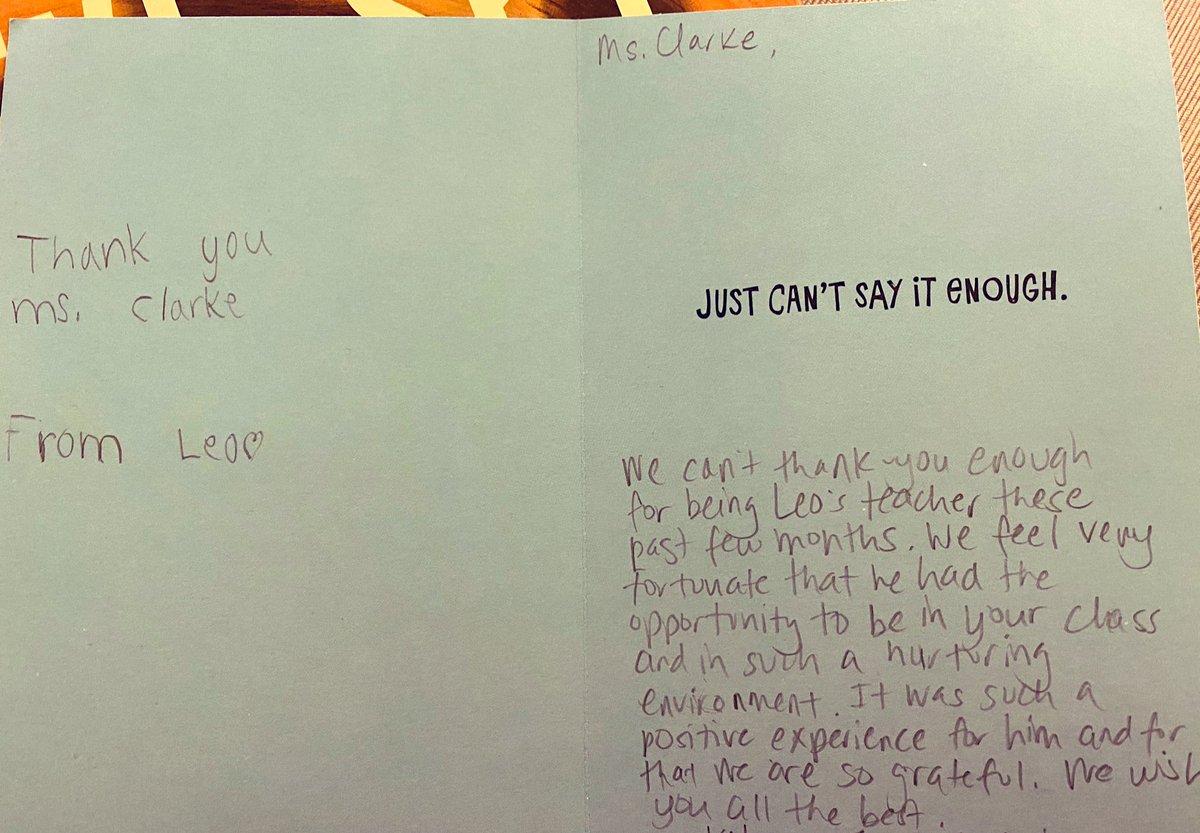 Thank you
ms. clarke
From Leo♡
Ms. Clarke,
JUST CAN'T SAY iT eNOUGH.
We can't thank you enough
for being Leo's teacher these
past few months. We feel very
fortunate that he had the
opportunity to be in your class
and in such a nurturing
environment. It was such a
positive experience for him and for
that we are so grateful. We wish
you all the best.